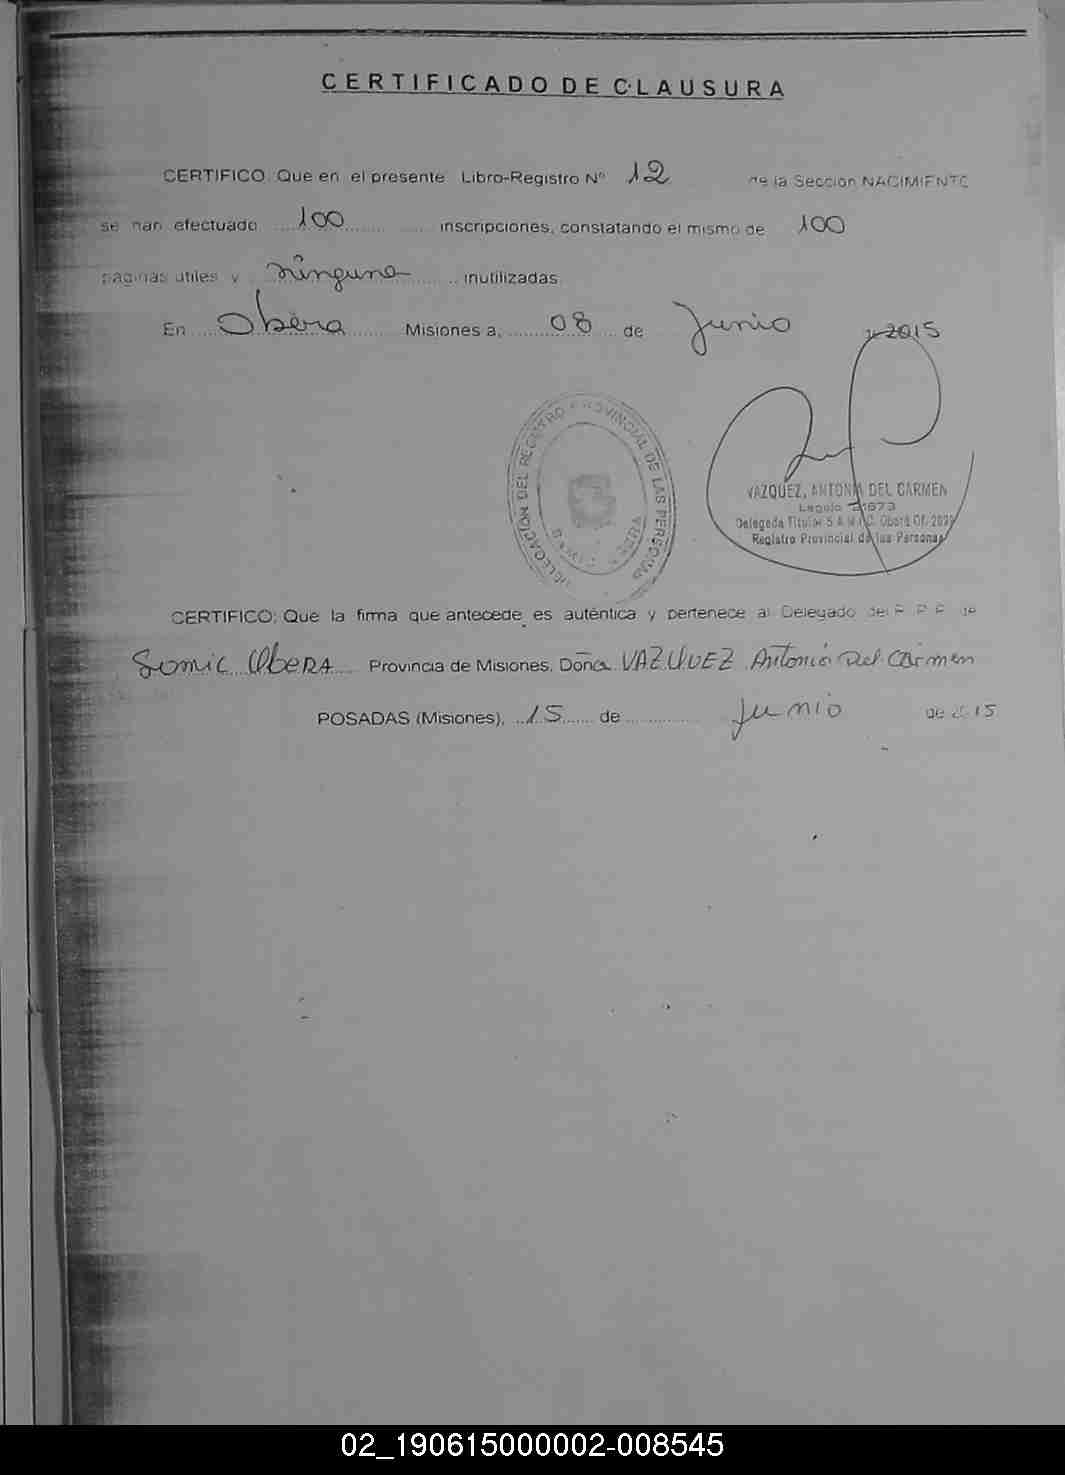 CERTIFICADO DE CLAUSURA
CERTIFICO: Que en el presente Libro-Registro Nº 12 de la Sección NACIMIENTO
se han efectuado 100 inscripciones, constatando el mismo de 100
páginas utiles y ninguna inutilizadas.
En Oberá Misiones a, 08 de Junio 2015
DELEGACIÓN DEL REGISTRO PROVINCIAL DE LAS PERSONAS
VAZQUEZ, ANTONIA DEL CARMEN
Legajo
Delegada Titular Oberá Of.
Registro Provincial de las Personas
CERTIFICO: Que la firma que antecede es auténtica y pertenece al Delegado del R P P de
Oberá Provincia de Misiones. Doña VAZQUEZ Antonia Del Carmen
POSADAS (Misiones), 15 de Junio de 2015
02_190615000002-008545